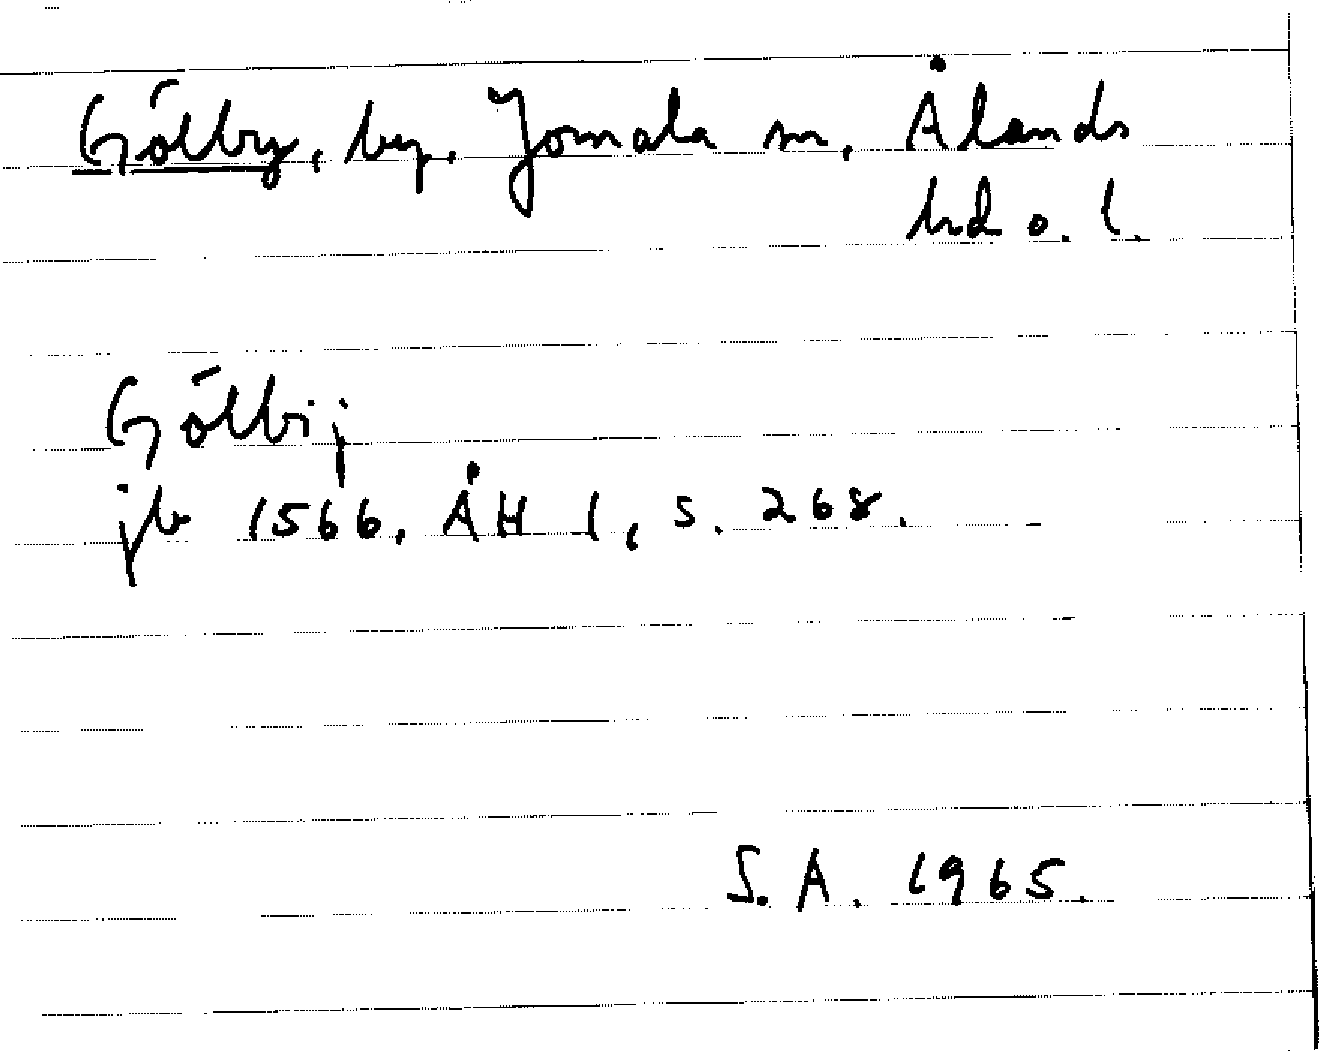 Gölby, by, Jomala sn, Ålands
hd o. l.
Gölbij
jb 1566, ÅH 1, s. 268.
S.A. 1965.